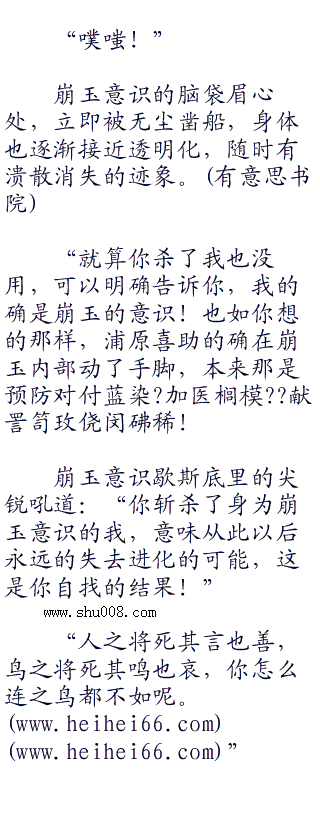 “噗嗤！”
崩玉意识的脑袋眉心
处，立即被无尘凿船，身体
也逐渐接近透明化，随时有
溃散消失的迹象。(有意思书
院)
“就算你杀了我也没
用，可以明确告诉你，我的
确是崩玉的意识！也如你想
的那样，浦原喜助的确在崩
玉内部动了手脚，本来那是
预防对付蓝染?加医榈模??献
詈笥玫侥闵砩稀！
崩玉意识歇斯底里的尖
锐吼道：“你斩杀了身为崩
玉意识的我，意味从此以后
永远的失去进化的可能，这
是你自找的结果！”
www.shu008.com
“人之将死其言也善，
鸟之将死其鸣也哀，你怎么
连之鸟都不如呢。
(www.heihei66.com)
(www.heihei66.com)”